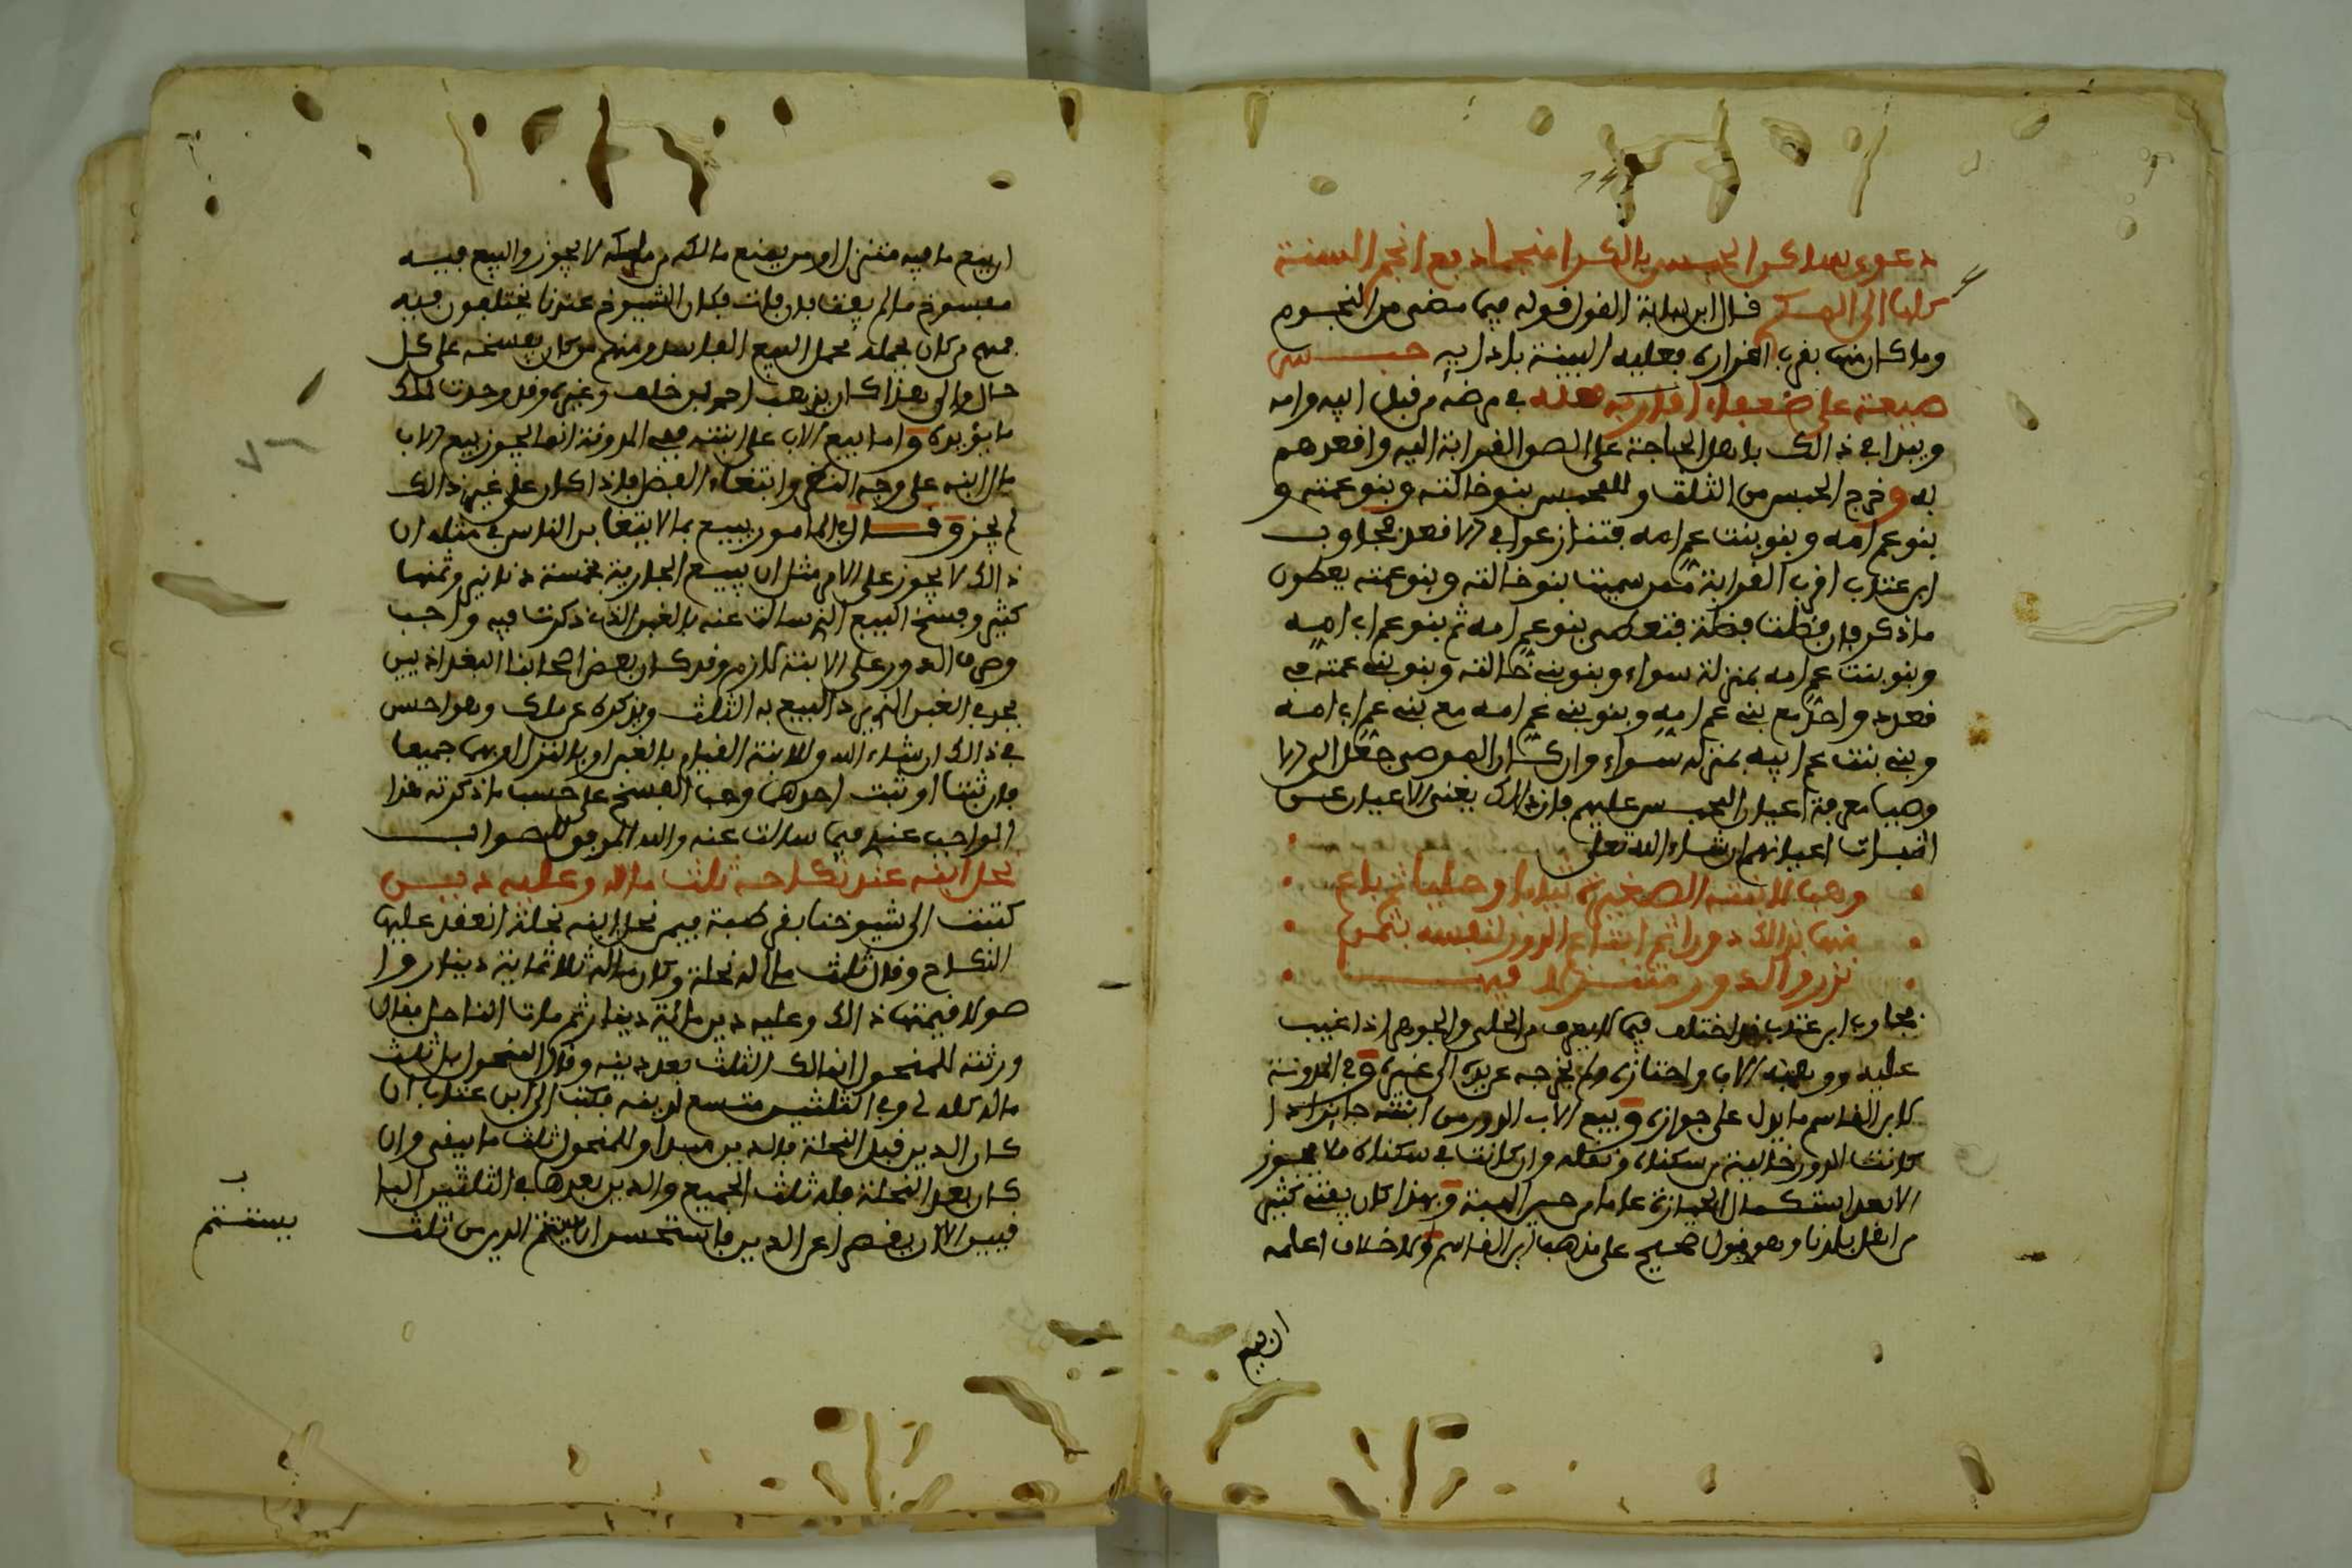 دعوى بهذا كرا الحبس بالكرا منجما دفع انجم السنة
كراها الى الحكم قال ابن لبابة القول قوله فيما مضى من النجوم
وما كان منها بقرب اقراره فعليه البينة بادايه حبس
ضيعة على ضعفاء اقاربه في مرضه من قبل ابيه وامه
ويبدا في ذالك باهل الحاجة على الصو القرابة اليه واقعدهم
به وخرج الحبس من الثلث وللمحبس بنو خالته وبنو عمته و
بنو عم امه وبنو بنت عم امه فتنازعوا في الاقعد فجاوب
ابن عتاب اقرب القرابة ممن سميت بنو خالته وبنو عمته يعطون
ما ذكر فان فضلت فضلة فتعطى بنو عم امه ثم بنو عم اب امه
وبنو بنت عم امه بمنزلة سواء وبنو بني خالته وبنو بني عمته في
قعدد واحد مع بني عم امه وبنو بني عم امه مع بني عم اب امه
وبني بنت عم ابيه بمنزلة سواء وان كان الموصي جعل الى
وصيا معرفة اعيان المحبس عليهم فان ذالك يغني الاعيان عن
اثبات اعيانهم ان شاء الله تعلى
وهب لابنته الصغيرة ثيابا وحليا ثم باع
منها بذالك دورا ثم ابتاع الدور لنفسه بثمن
نزر والدور متنزلا فيها
فجاوب ابن عتاب قد اختلف فيما لا يعرف من الحلي والجوهر اذا غيب
عليه ووهبه الاب واحتازه ولم يخرجه عن يده الى غيره وفي المدونة
لابن القاسم ما يدل على جوازه وبيع الاب الدور من ابنته جايز اذا
كانت الدور خالية من سكناه وثقله وان كانت في سكناه فلا يجوز
الا بعد استكمال الحيازة عاما من حين الهبة وبهذا كان يفتي كثير
من اهل بلدنا وهو قول صحيح على مذهب ابن القاسم ولا خلاف اعلمه
ان فيه
ان بيع ما فيه متنزل او من يمنع مالكه من ملكه لا يجوز والبيع فيه
مفسوخ ما لم يفت فان فات فكان الشيوخ عندنا يختلفون فيه
فمنهم من كان يحمله محمل البيع الفاسد ومنهم من كان يفسخه على كل
حال والى هذا كان يذهب احمد بن خلف وغيره وقد وجدت لمالك
ما يؤيده واما بيع الاب على ابنته ففي المدونة انما يجوز بيع الاب
مال ابنه على وجه النظر وابتغاء الفضل فاذا كان على غير ذالك
لم يجز وقال في المامور يبيع بما لا يتغابن الناس في مثله ان
ذالك لا يجوز على الامر مثل ان يبيع الجارية بخمسة دنانير وثمنها
كثير وفسخ البيع الذي سالت عنه بالغبن الذي ذكرت فيه واجب
وصرف الدور على الابنة لازم وقد كان بعض اصحابنا البغداذيين
يحد في الغبن الذي يرد البيع به الثلث ويذكره عن مالك وهو احسن
في ذالك ان شاء الله وللابنة القيام بالغبن او بالتنزل او بهما جميعا
فان ثبتا او ثبت احدهما وجب الفسخ على حسب ما ذكرته هذا
الواجب عندي فيما سالت عنه والله الموفق للصواب
نحل ابنه عند نكاحه ثلث ماله وعليه دين
كتبت الى شيوخنا بقرطبة فيمن نحل ابنه نحلة انعقد عليها
النكاح وقال ثلث مالي له نحلة وكان ماله ثلاثماية دينار وا
صولا قيمتها ذالك وعليه دين ماية دينار ثم مات الناحل فقال
ورثته للمنحول انما لك الثلث بعد دينه وقال المنحول بل ثلث
ماله كله لي وفي الثلثين متسع لدينه فكتب الي ابن عتاب ان
كان الدين قبل النحلة فالدين مبدا وللمنحول ثلث ما بيقي وان
كان بعد النحلة فله ثلث الجميع والدين بعدها في الثلثين البا
قيين الا ان يقصرا عن الدين فاستحسن ان يستتم الدين من ثلث
ب
يستتم